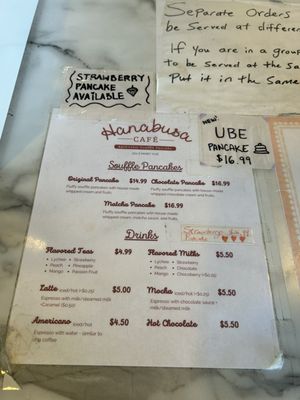 Separate Orders
be Served at differen
If you are in a grou
to be served at the sa
Put it in the same
STRAWBERRY
PANCAKE
AVAILABLE
Hanabusa
CAFÉ
NEW!
UBE
PANCAKE
$16.99
Souffle Pancakes
Original Pancake $14.99
Fluffy souffle pancakes with house made
whipped cream and fruits.
Chocolate Pancake $16.99
Fluffy souffle pancakes with house made
Matcha Pancake $16.99
Fluffy souffle pancakes with house made
Drinks
Flavored Teas $4.99
• Lychee • Strawberry
• Peach • Pineapple
• Mango • Passion Fruit
Flavored Milks $5.50
• Lychee • Strawberry
• Peach • Chocolate
• Mango
Latte iced/hot $5.00
Espresso with milk/steamed milk
Mocha $5.50
Espresso with chocolate sauce +
milk/steamed milk
Americano iced/hot $4.50
Espresso with water - similar to
drip coffee
Hot Chocolate $5.50